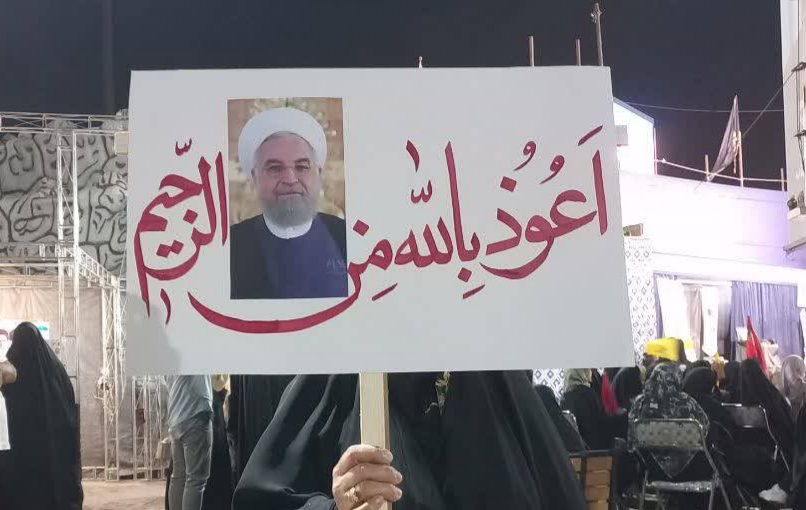 اَعُوذُ بِاللّٰهِ مِنَ الرَّجیم